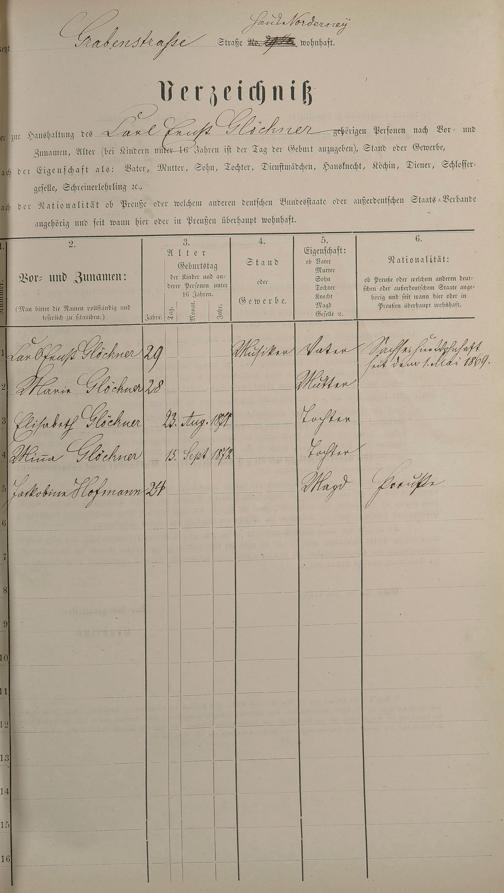 Haus Norderney
Grabenstrasse Straße No. wohnhaft.
Verzeichniß
zur Haushaltung des Carl Ernst Glöckner gehörigen Personen nach Vor- und
Zunamen, Alter (bei Kindern unter 16 Jahren ist der Tag der Geburt anzugeben), Stand oder Gewerbe,
der Eigenschaft als: Vater, Mutter, Sohn, Tochter, Dienstmädchen, Hausknecht, Köchin, Diener, Schlosser-
geselle, Schreinerlehrling ꝛc.,
der Nationalität ob Preuße oder welchem anderen deutschen Bundesstaate oder außerdeutschen Staats-Verbande
angehörig und seit wann hier oder in Preußen überhaupt wohnhaft.
1. 2. 3. 4. 5. 6.
Nummer.
Vor- und Zunamen:
(Man bittet die Namen vollständig und
leserlich zu schreiben.)
Alter
Geburtstag
der Kinder und an-
derer Personen unter
16 Jahren.
Jahre Tag. Monat. Jahr.
Stand
oder
Gewerbe.
Eigenschaft:
ob Vater
Mutter
Sohn
Tochter
Knecht
Magd
Geselle ꝛc.
Nationalität:
ob Preuße oder welchem anderen deut-
schen oder außerdeutschen Staate ange-
hörig und seit wann hier oder in
Preußen überhaupt wohnhaft.
1 Carl Ernst Glöckner 29 Musiker Vater Sachse, hier wohnhaft
seit dem 1. Mai 1869.
2 Marie Glöckner 28 Mutter
3 Elisabeth Glöckner 23. Aug. 1871 Tochter
4 Mina Glöckner 15. Sept 1872 Tochter
5 Jackobine Hofmann 24 Magd Preuße
6
7
8
9
10
11
12
13
14
15
16